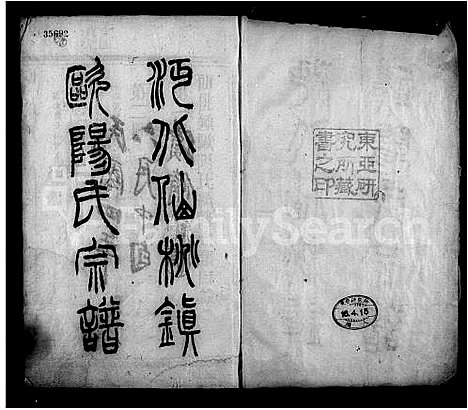 35692
沔水仙桃鎮
歐陽氏宗譜
東亞研
究所藏
書之印
16.4.15
FamilySearch